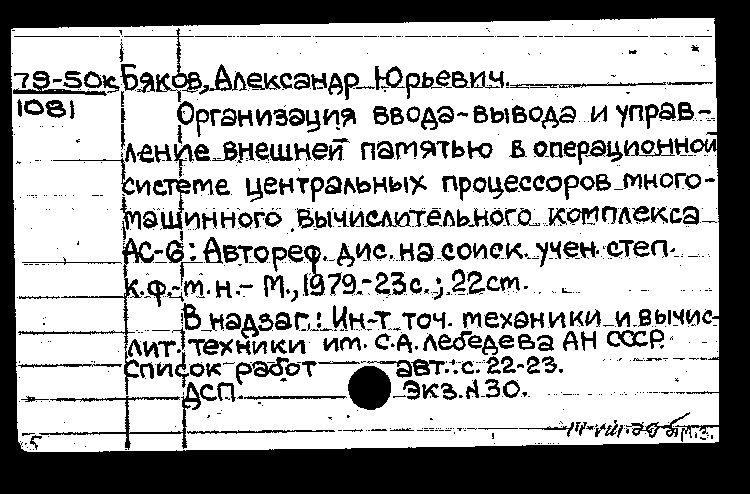 79-50к Бяков, Александр Юрьевич.
1081 Организация ввода-вывода и управ-
ление внешней памятью в операционной
системе центральных процессоров много-
машинного вычислительного комплекса
АС-6: Автореф. дис. на соиск. учен. степ.
к.ф.-т.н.- М., 1979.-23с.; 22ст.
В надзаг.: Ин-т точ. механики и вычис-
лит. техники им. С.А. Лебедева АН СССР.
Список работ авт.: с. 22-23.
ДСП. Экз. N 30.
5